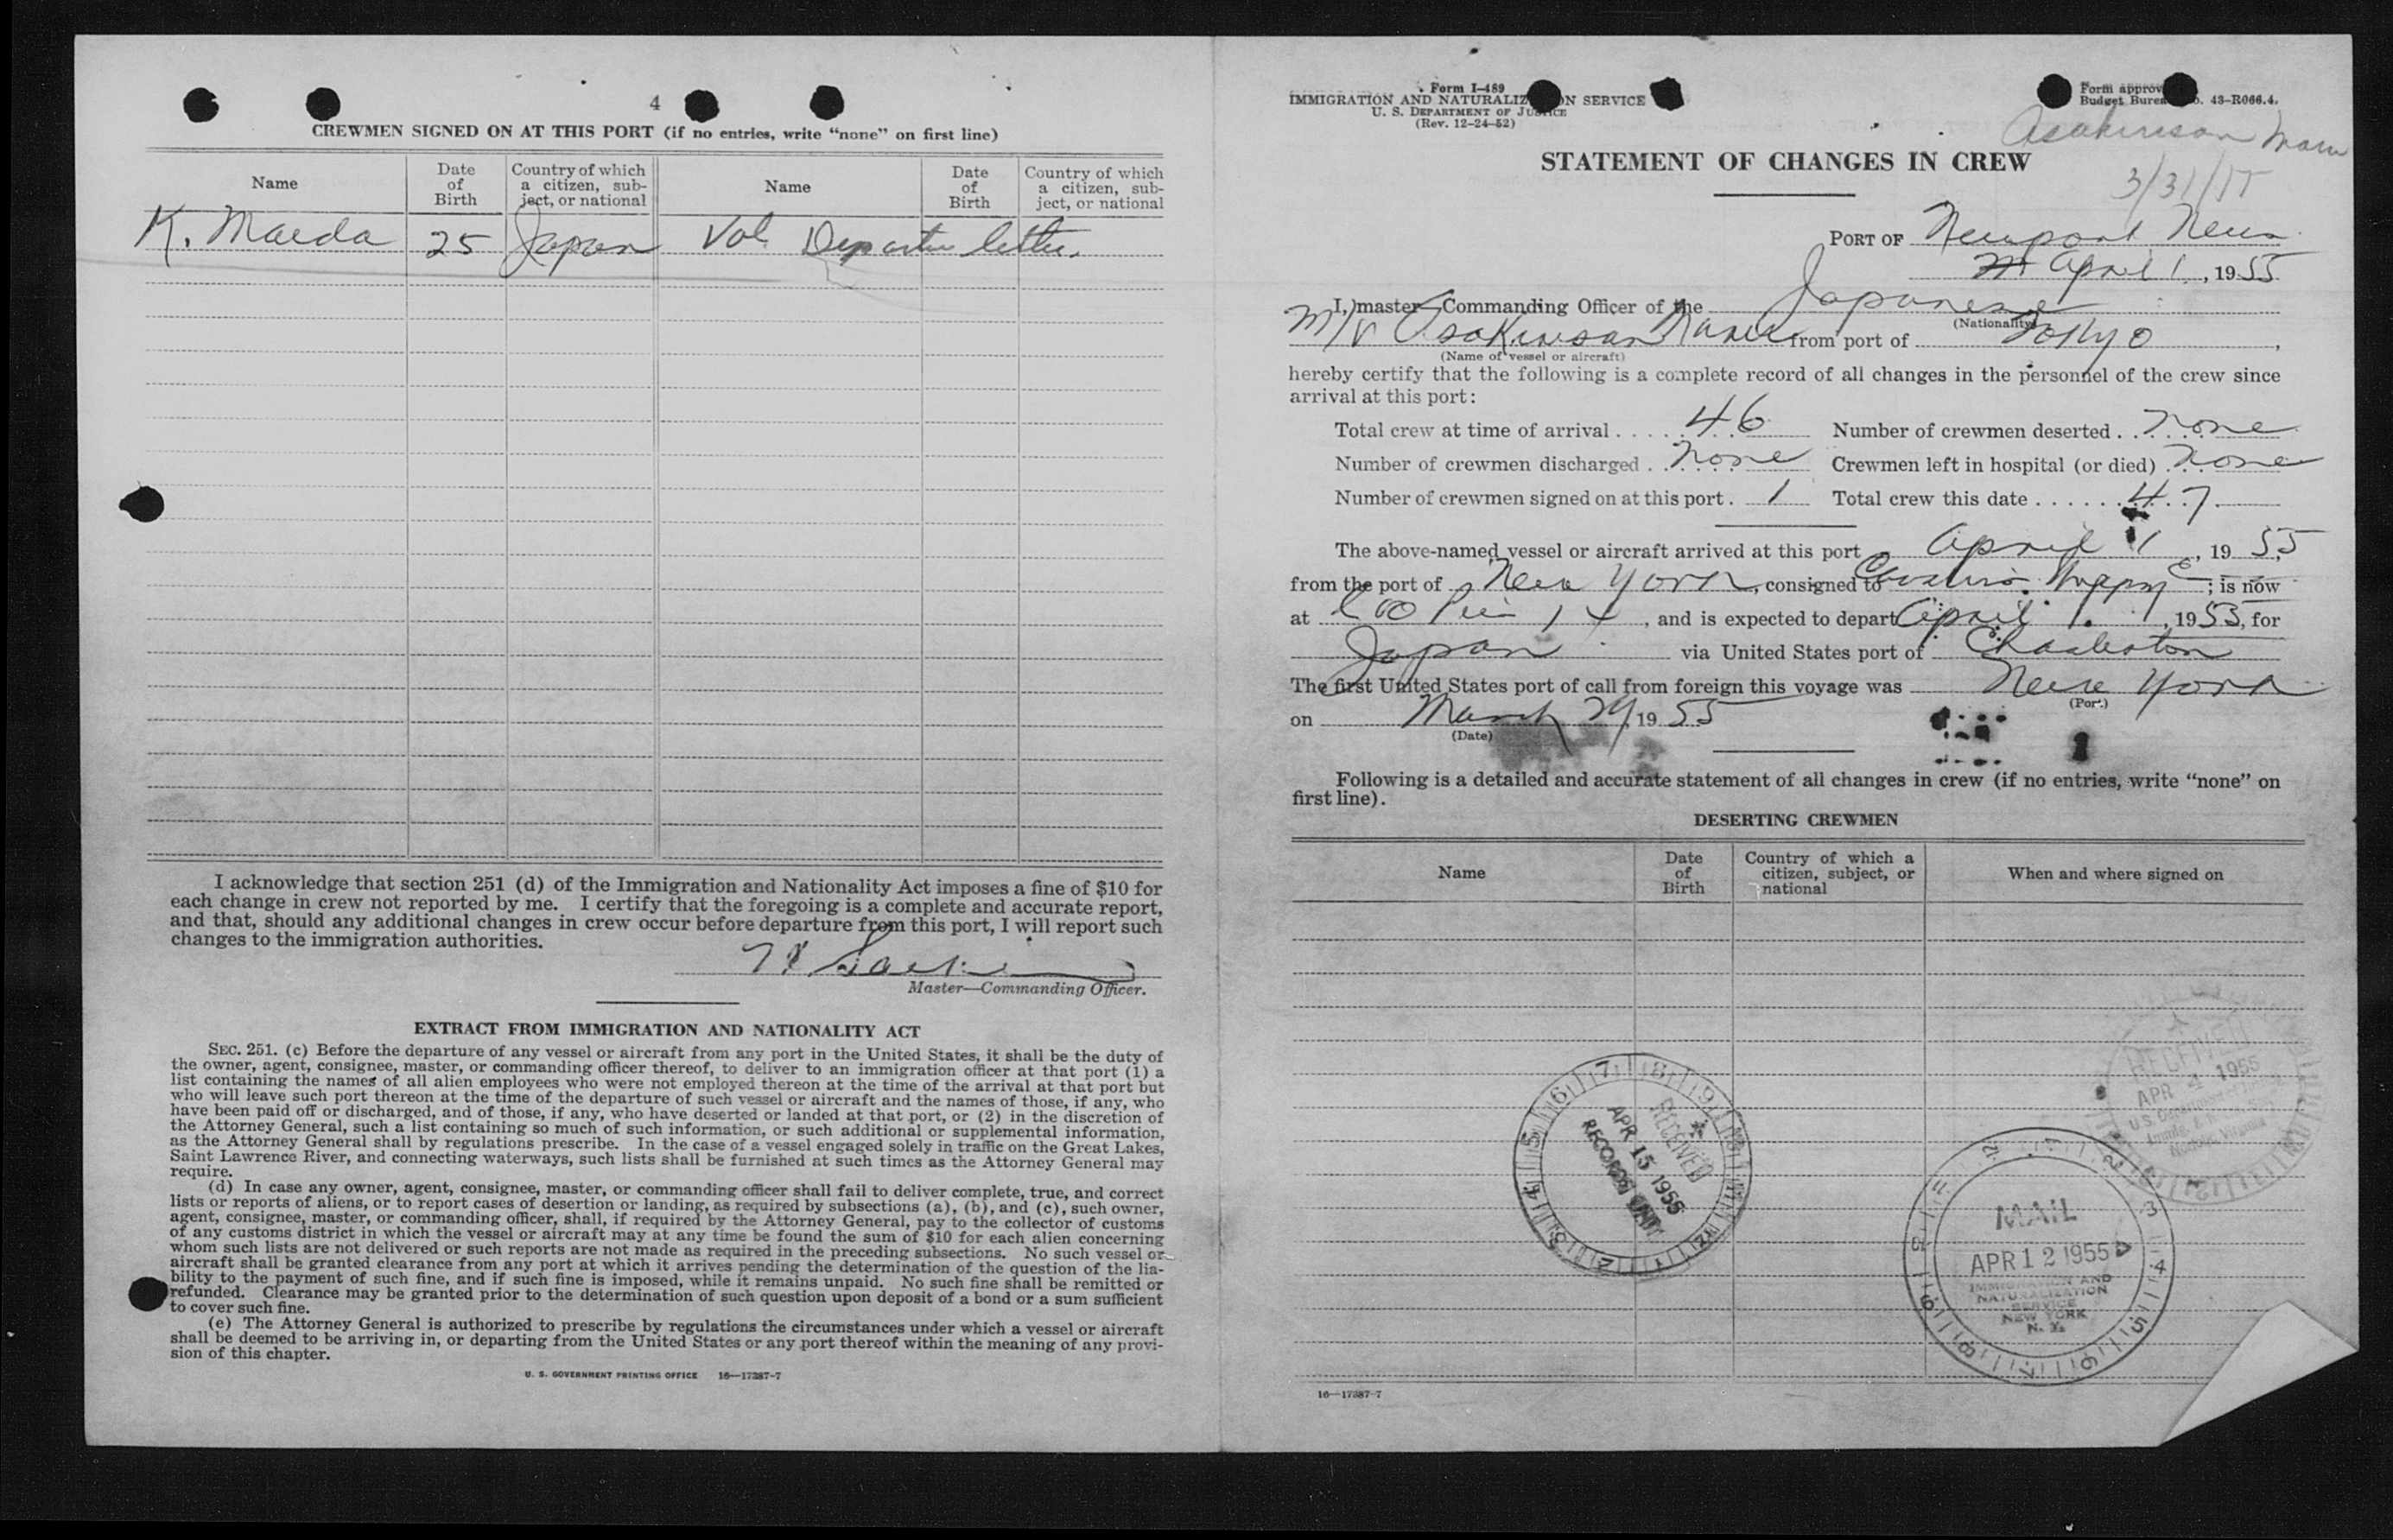 4
CREWMEN SIGNED ON AT THIS PORT (if no entries, write “none” on first line)
Name
Date of Birth
Country of which a citizen, subject, or national
Name
Date of Birth
Country of which a citizen, subject, or national
K. Maeda 25 Japan Vol. Departure letter.
I acknowledge that section 251 (d) of the Immigration and Nationality Act imposes a fine of $10 for
each change in crew not reported by me. I certify that the foregoing is a complete and accurate report,
and that, should any additional changes in crew occur before departure from this port, I will report such
changes to the immigration authorities.
Master—Commanding Officer.
EXTRACT FROM IMMIGRATION AND NATIONALITY ACT
SEC. 251. (c) Before the departure of any vessel or aircraft from any port in the United States, it shall be the duty of
the owner, agent, consignee, master, or commanding officer thereof, to deliver to an immigration officer at that port (1) a
list containing the names of all alien employees who were not employed thereon at the time of the arrival at that port but
who will leave such port thereon at the time of the departure of such vessel or aircraft and the names of those, if any, who
have been paid off or discharged, and of those, if any, who have deserted or landed at that port, or (2) in the discretion of
the Attorney General, such a list containing so much of such information, or such additional or supplemental information,
as the Attorney General shall by regulations prescribe. In the case of a vessel engaged solely in traffic on the Great Lakes,
Saint Lawrence River, and connecting waterways, such lists shall be furnished at such times as the Attorney General may
require.
(d) In case any owner, agent, consignee, master, or commanding officer shall fail to deliver complete, true, and correct
lists or reports of aliens, or to report cases of desertion or landing, as required by subsections (a), (b), and (c), such owner,
agent, consignee, master, or commanding officer, shall, if required by the Attorney General, pay to the collector of customs
of any customs district in which the vessel or aircraft may at any time be found the sum of $10 for each alien concerning
whom such lists are not delivered or such reports are not made as required in the preceding subsections. No such vessel or
aircraft shall be granted clearance from any port at which it arrives pending the determination of the question of the lia-
bility to the payment of such fine, and if such fine is imposed, while it remains unpaid. No such fine shall be remitted or
refunded. Clearance may be granted prior to the determination of such question upon deposit of a bond or a sum sufficient
to cover such fine.
(e) The Attorney General is authorized to prescribe by regulations the circumstances under which a vessel or aircraft
shall be deemed to be arriving in, or departing from the United States or any port thereof within the meaning of any provi-
sion of this chapter.
U. S. GOVERNMENT PRINTING OFFICE 16—17387-7
Form I-489
IMMIGRATION AND NATURALIZATION SERVICE
U. S. DEPARTMENT OF JUSTICE
(Rev. 12-24-52)
Form approv
Budget Bureau No. 43-R066.4.
Asakisan Maru
3/31/55
STATEMENT OF CHANGES IN CREW
PORT OF Newport News
April 1, 1955
I, master, Commanding Officer of the Japanese
(Nationality)
M/V Asakasan Maru from port of Tokyo,
(Name of vessel or aircraft)
hereby certify that the following is a complete record of all changes in the personnel of the crew since
arrival at this port:
Total crew at time of arrival 46 Number of crewmen deserted none
Number of crewmen discharged none Crewmen left in hospital (or died) none
Number of crewmen signed on at this port 1 Total crew this date 47
The above-named vessel or aircraft arrived at this port April 1, 1955,
from the port of New York, consigned to ; is now
at C&O Pier 14, and is expected to depart April 1, 1955, for
Japan via United States port of Charleston
The first United States port of call from foreign this voyage was New York
(Port)
on March 29, 1955
(Date)
Following is a detailed and accurate statement of all changes in crew (if no entries, write “none” on
first line).
DESERTING CREWMEN
Name
Date of Birth
Country of which a citizen, subject, or national
When and where signed on
RECEIVED
APR 15 1955
RECORDS UNIT
RECEIVED
APR 4 1955
Norfolk, Virginia
MAIL
APR 12 1955
IMMIGRATION AND
NATURALIZATION
SERVICE
NEW YORK
N. Y.
16—17387-7